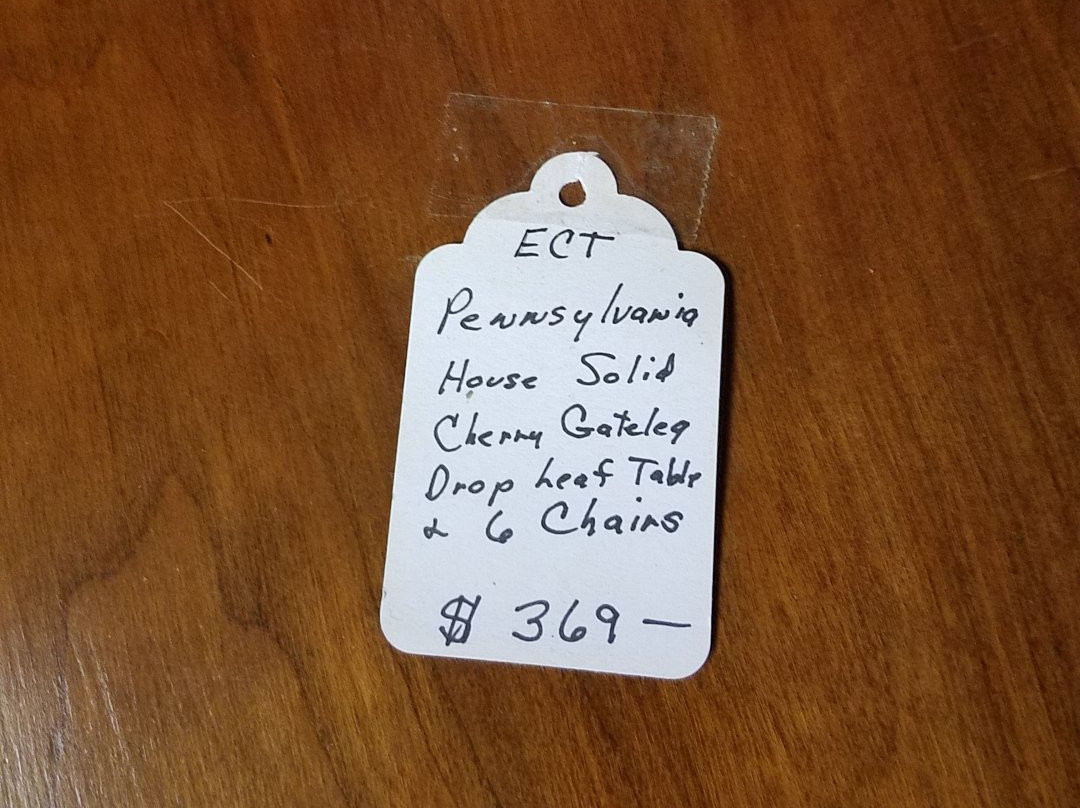 ECT
Pennsylvania
House Solid
Cherry Gateleg
Drop Leaf Table
& 6 Chairs
$ 369 —